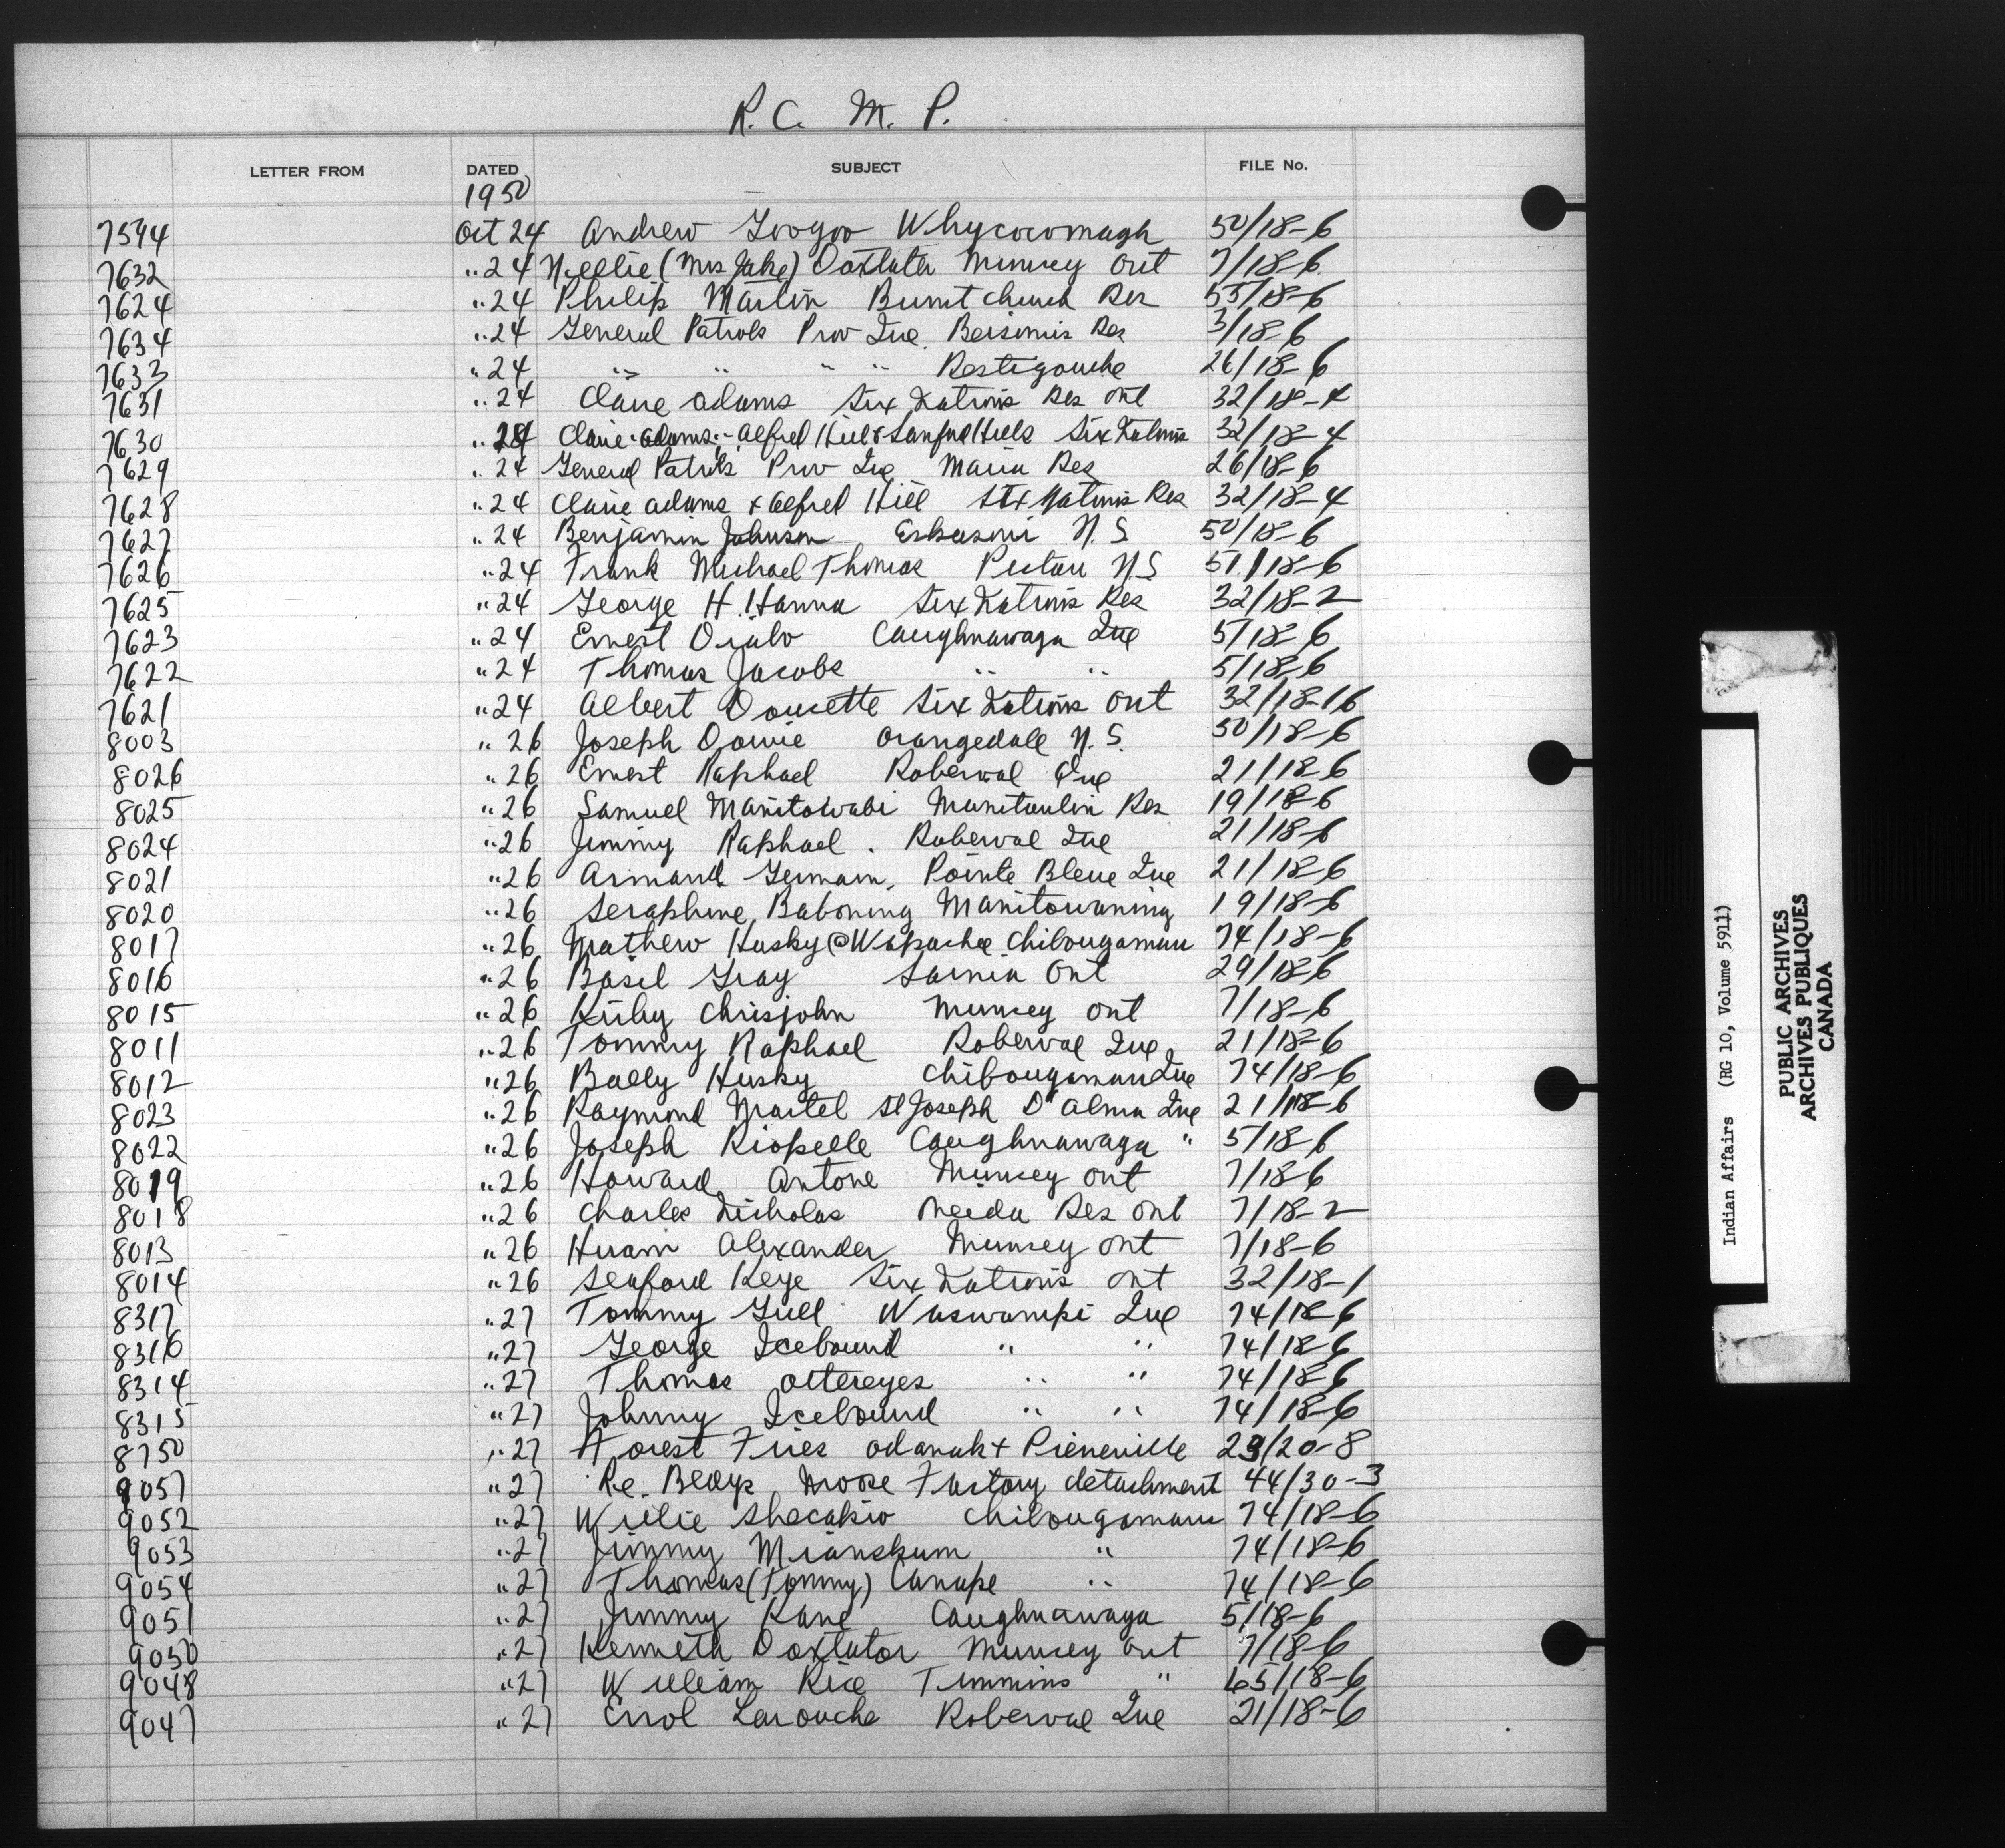 R. C. M. P.
LETTER FROM DATED SUBJECT FILE No.
1950
7594 Oct 24 Andrew Googoo Whycocomagh 50/18-6
7632 " 24 Nellie (Mrs Jake) Doxtater Muncey Ont 7/18-6
7624 " 24 Philip Martin Burnt Church Res 55/18-6
7634 " 24 General Patrols Prov Que. Bersimis Res 3/18-6
7633 " 24 " " " " Restigouche 26/18-6
7631 " 24 Claire Adams Six Nations Res Ont 32/18-4
7630 " 24 Claire Adams - Alfred Hill & Sanford Hill Six Nations 32/18-4
7629 " 24 General Patrols Prov Que Maria Res 26/18-6
7628 " 24 Claire Adams & Alfred Hill Six Nations Res 32/18-4
7627 " 24 Benjamin Johnson Eskasoni N.S 50/18-6
7626 " 24 Frank Michael Thomas Pictou N.S 51/18-6
7625 " 24 George H. Hanna Six Nations Res 32/18-2
7623 " 24 Ernest Caughnawaga Que 5/18-6
7622 " 24 Thomas Jacobs " " 5/18-6
7621 " 24 Albert Doucette Six Nations Ont 32/18-16
8003 " 26 Joseph Orangedale N.S. 50/18-6
8026 " 26 Ernest Raphael Roberval Que 21/18-6
8025 " 26 Samuel Manitowabi Manitoulin Res 19/18-6
8024 " 26 Jimmy Raphael. Roberval Que 21/18-6
8021 " 26 Armand Germain, Pointe Bleue Que 21/18-6
8020 " 26 Seraphine Baboning Manitowaning 19/18-6
8017 " 26 Mathew Husky @ Wapachee Chibougamau 74/18-6
8016 " 26 Basil Gray Sarnia Ont 29/18-6
8015 " 26 Kirby Chrisjohn Muncey Ont 7/18-6
8011 " 26 Tommy Raphael Roberval Que 21/18-6
8012 " 26 Bally Husky Chibougamau Que 74/18-6
8023 " 26 Raymond Martel St Joseph D'Alma Que 21/18-6
8022 " 26 Joseph Riopelle Caughnawaga " 5/18-6
8019 " 26 Howard Antone Muncey Ont 7/18-6
8018 " 26 Charles Nicholas Oneida Res Ont 7/18-2
8013 " 26 Hiram Alexander Muncey Ont 7/18-6
8014 " 26 Seaford Keye Six Nations Ont 32/18-1
8317 " 27 Tommy Gull Waswanipi Que 74/18-6
8316 " 27 George Icebound " " 74/18-6
8314 " 27 Thomas Ottereyes " " 74/18-6
8315 " 27 Johnny Icebound " " 74/18-6
8750 " 27 Forest Fires Odanak & Pierreville 23/20-8
9057 " 27 Re. Bldgs Moose Factory detachment 44/30-3
9052 " 27 Willie Shecapio Chibougamau 74/18-6
9053 " 27 Jimmy Mianskum " 74/18-6
9054 " 27 Thomas (Tommy) Canape " 74/18-6
9051 " 27 Jimmy Kane Caughnawaga 5/18-6
9050 " 27 Kenneth Doxtator Muncey Ont 7/18-6
9048 " 27 William Rice Timmins " 65/18-6
9047 " 27 Errol Larouche Roberval Que 21/18-6
Indian Affairs (RG 10, Volume 5911)
PUBLIC ARCHIVES
ARCHIVES PUBLIQUES
CANADA